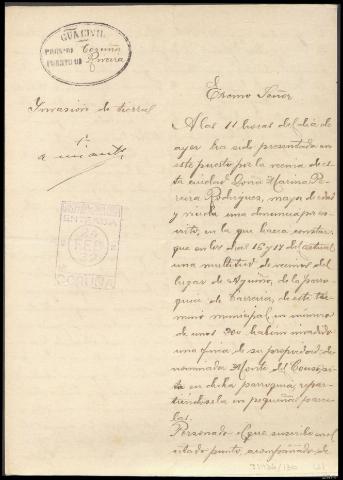 GUA. CIVIL
Coruña
PUESTO DE Riveira
Invasión de tierras
Excmo Señor
A las 11 horas del día de
ayer ha sido presentada en
este puesto por la vecina de es
ta ciudad Doña Marina Pe
reira Rodriguez, mayor de edad
y viuda una denuncia por es
crito, en la que hacia constar,
que en los dias 16 y 17 del actual
una multitud de vecinos del
lugar de Aguiño, de la parro
quia de Carreira, de este tér
mino municipal, en número
de unos 300 habian invadido
una finca de su propiedad de
nominada Monte del
en dicha parroquia, repar
tiendosela en pequeñas parce
las.
Personado el que suscribe en el
citado punto, acompañado de
ENTRADA
FEB
CORUÑA